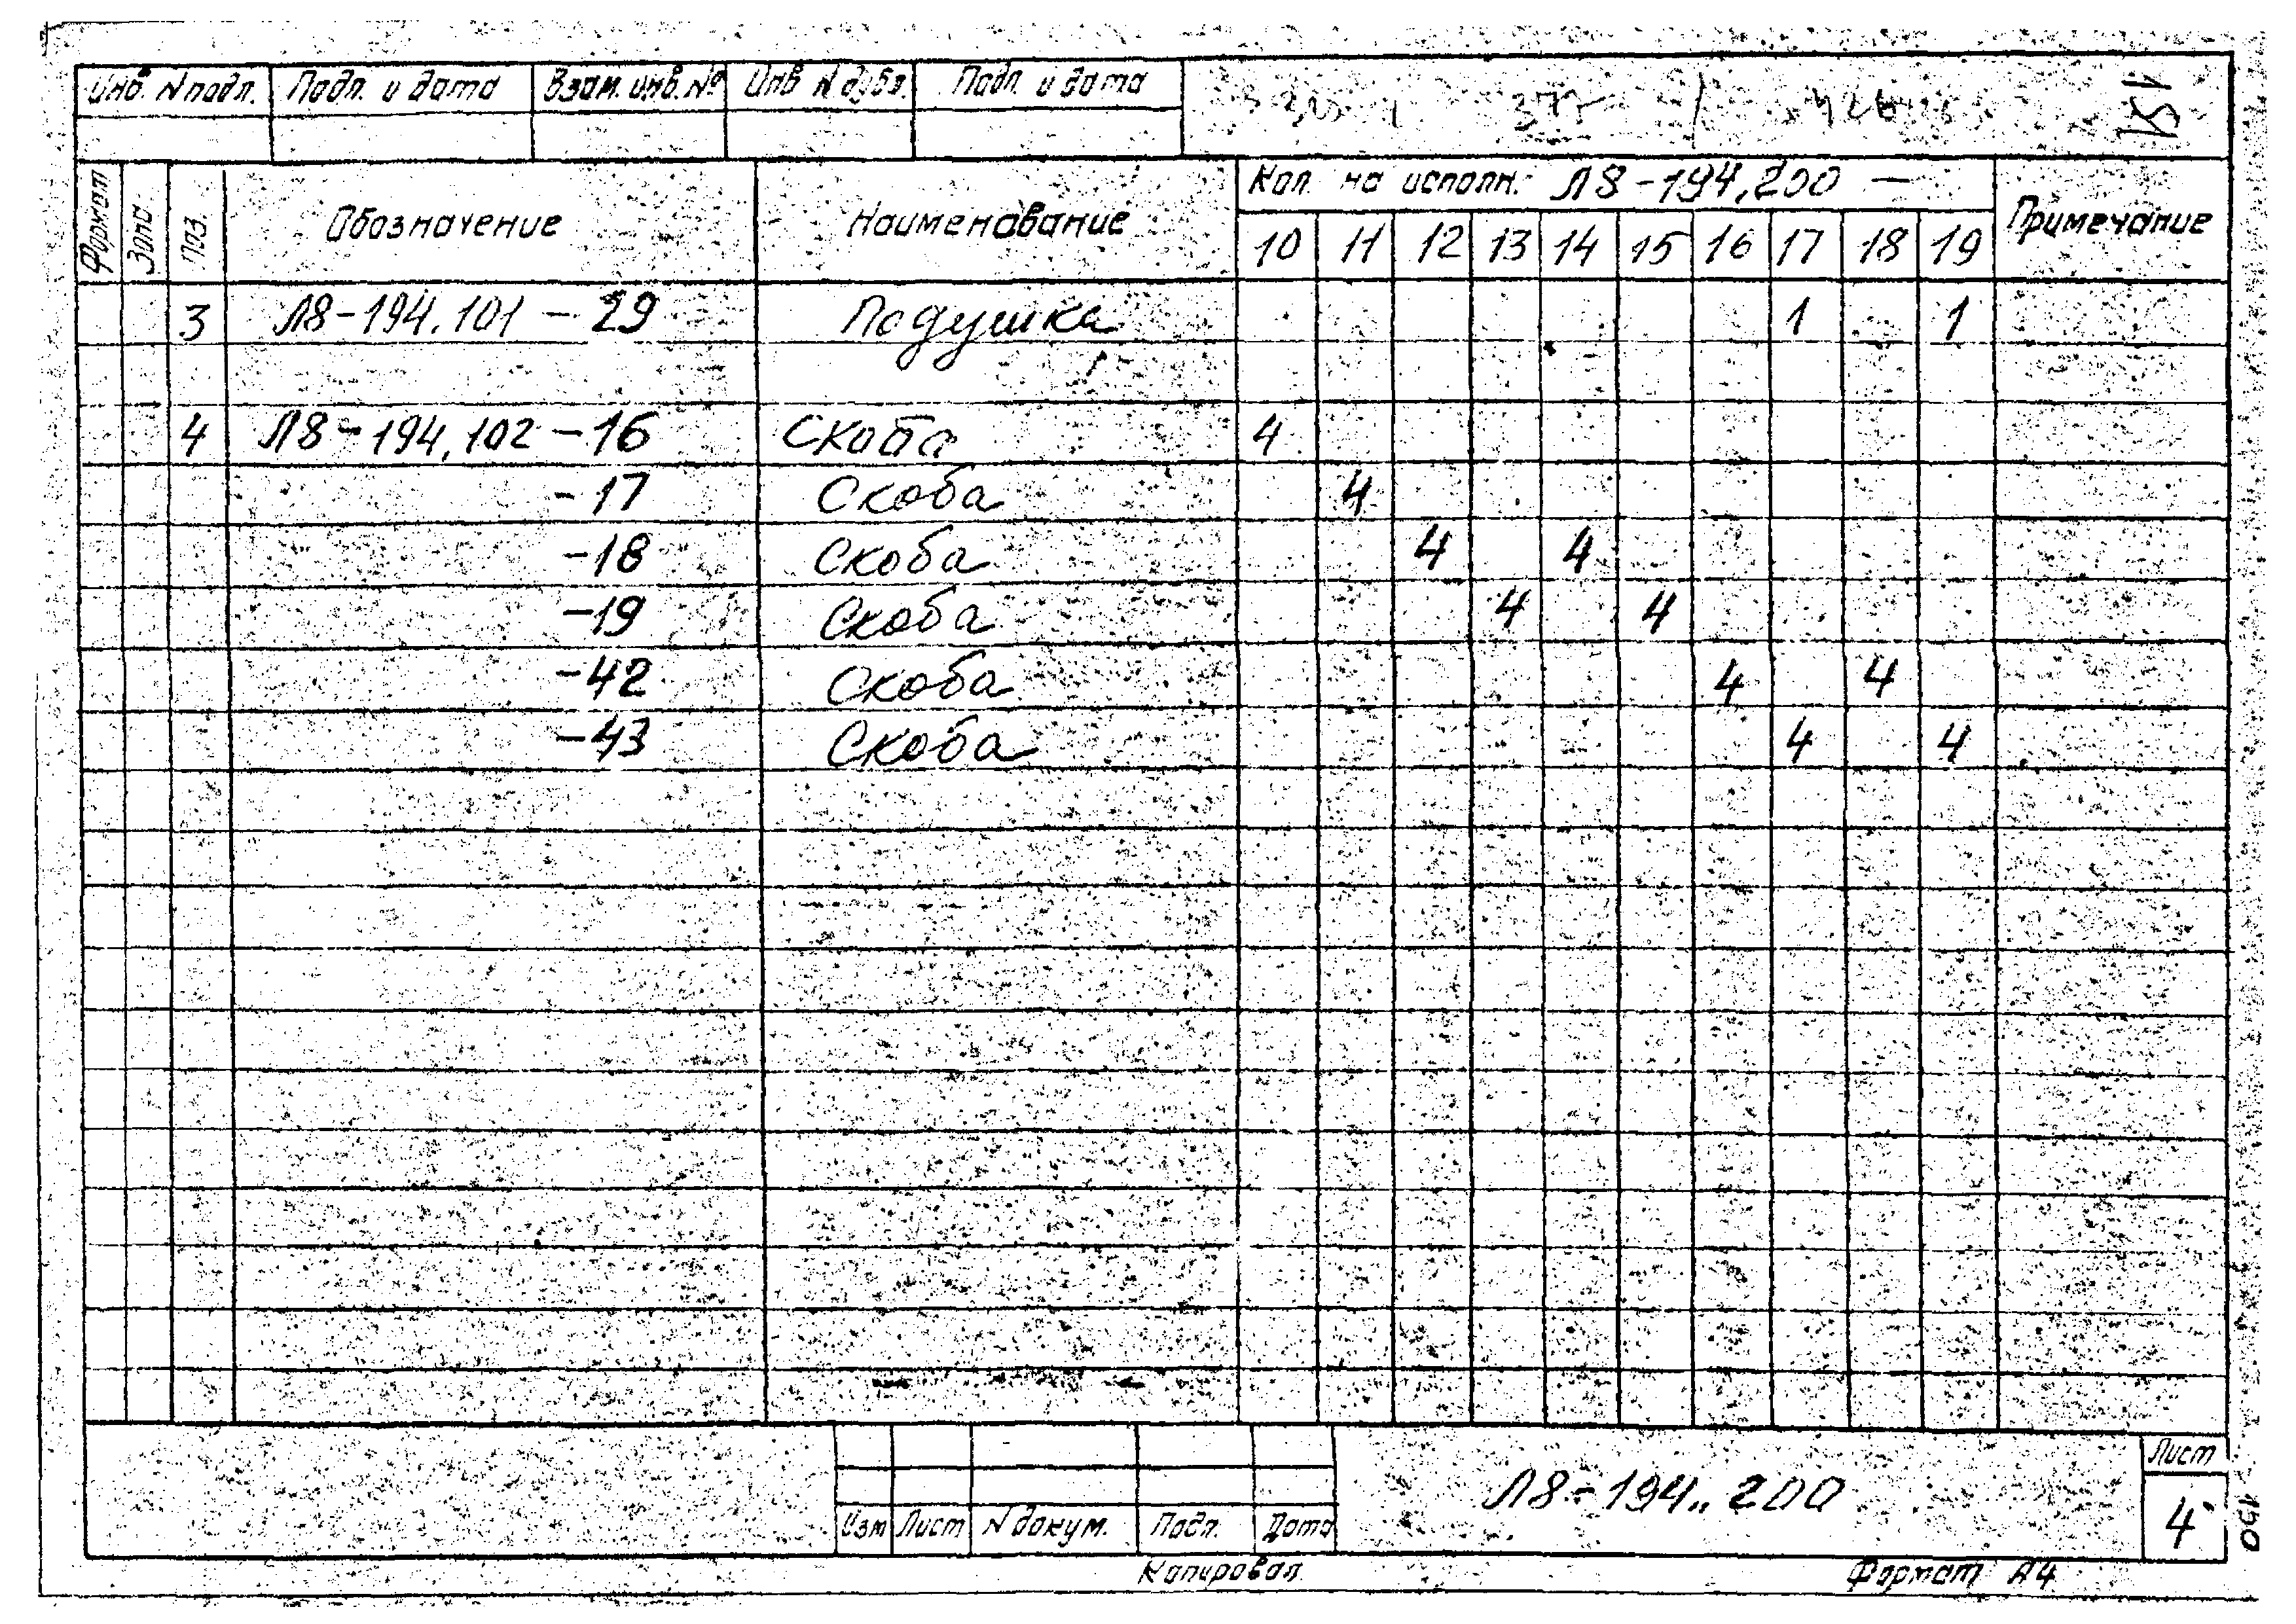 Инв. N подл. Подп. и дата Взам. инв. № Инв N дубл. Подп. и дата
181
Формат Зона Поз. Обозначение Наименование Кол. на исполн. Л8-194.200 — Примечание
10 11 12 13 14 15 16 17 18 19
3 Л8-194.101 - 29 Подушка 1 1
4 Л8-194.102 - 16 Скоба 4
-17 Скоба 4
-18 Скоба 4 4
-19 Скоба 4 4
-42 Скоба 4 4
-43 Скоба 4 4
Изм Лист N докум. Подп. Дата
Л8-194.200
Лист
4
Копировал Формат А4
150